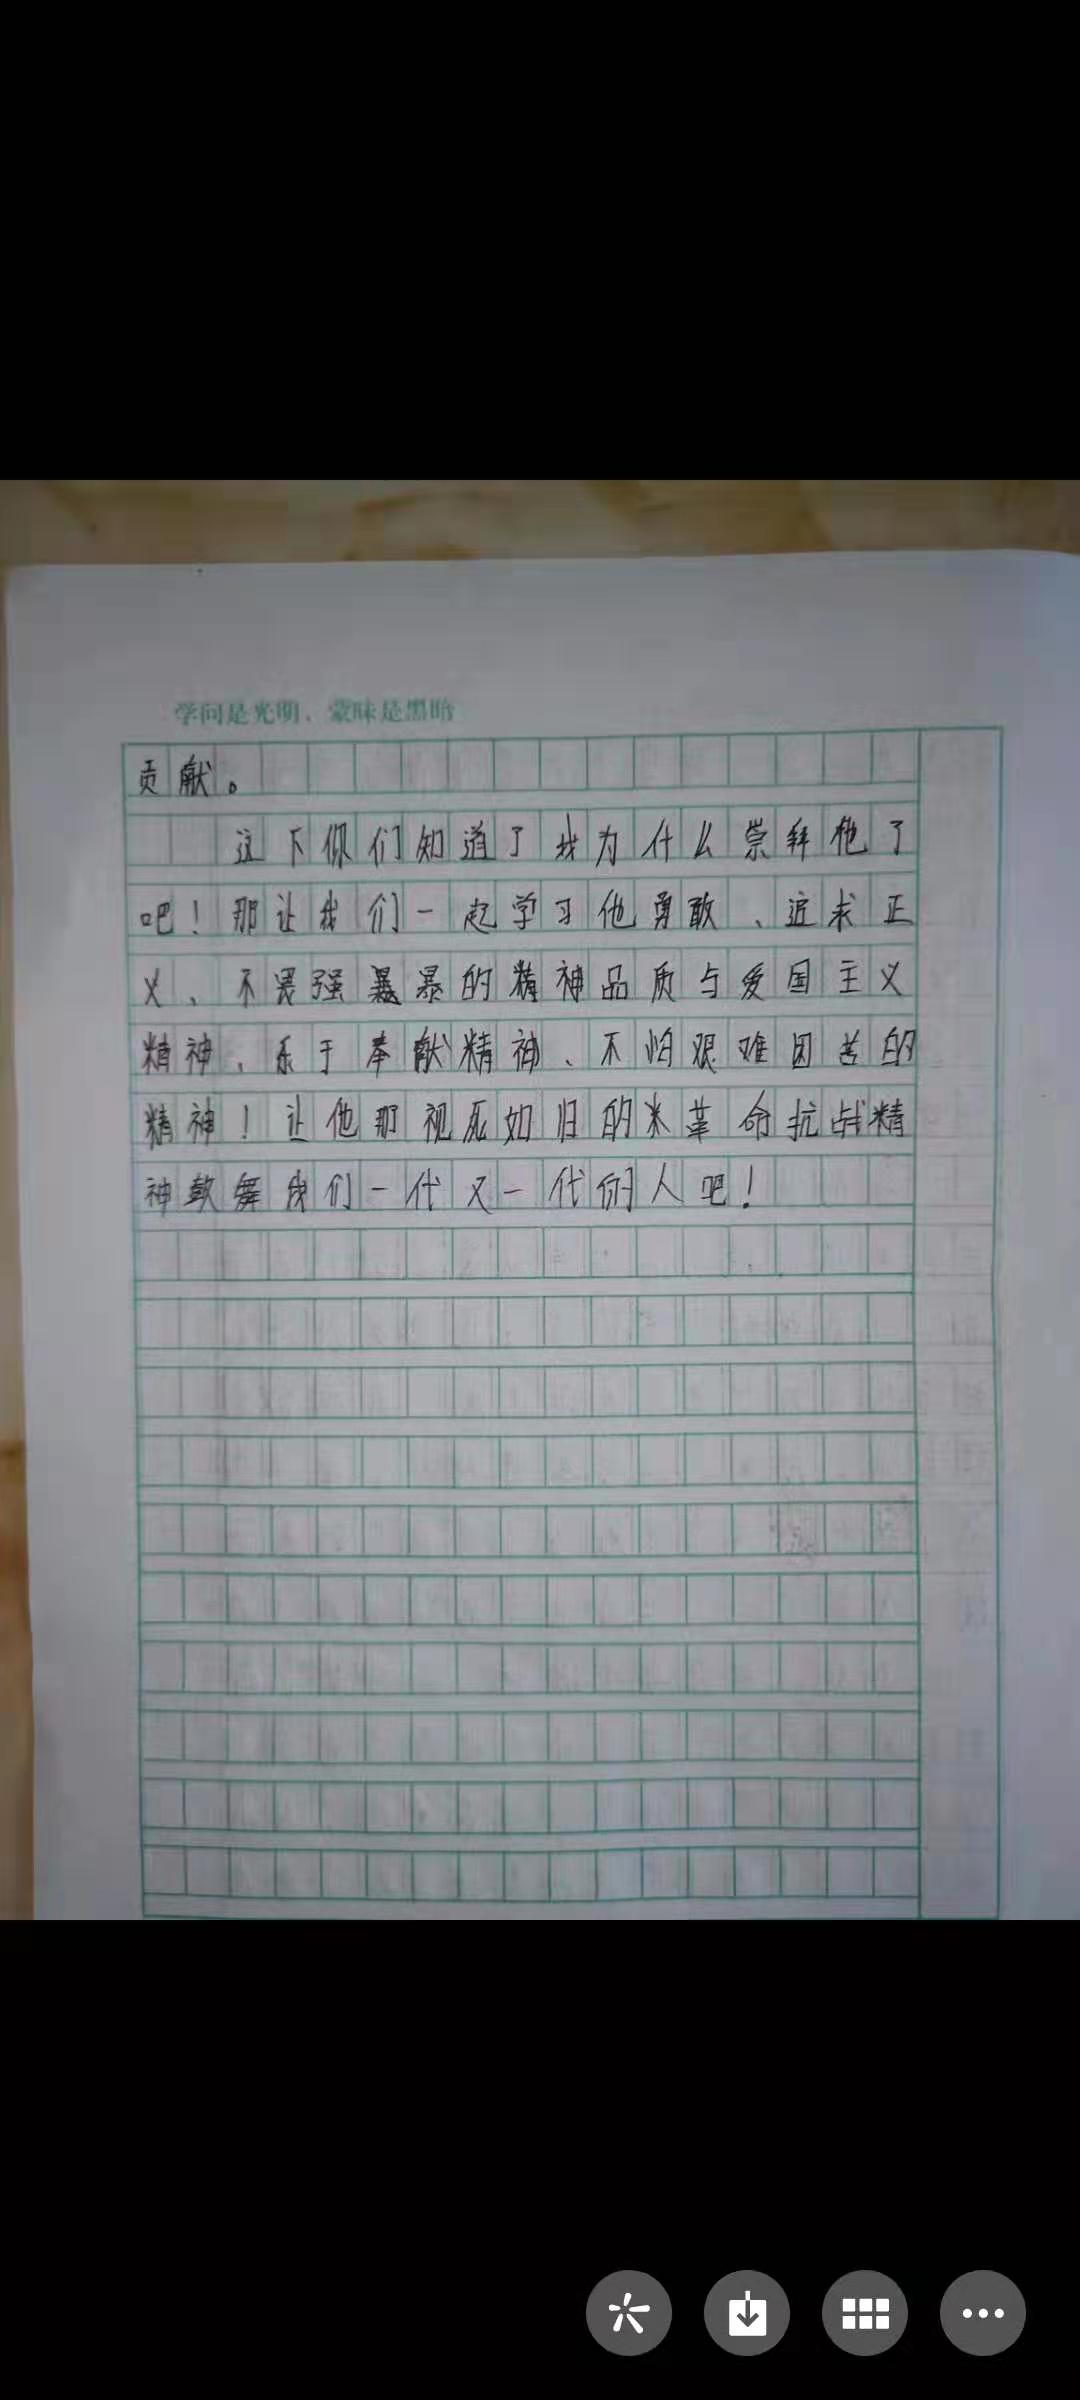 学问是光明，蒙昧是黑暗
贡献。
这下你们知道了我为什么崇拜他了
吧！那让我们一起学习他勇敢、追求正
义、不畏强暴的精神品质与爱国主义
精神、乐于奉献精神、不怕艰难困苦的
精神！让他那视死如归的革命抗战精
神鼓舞我们一代又一代的人吧！